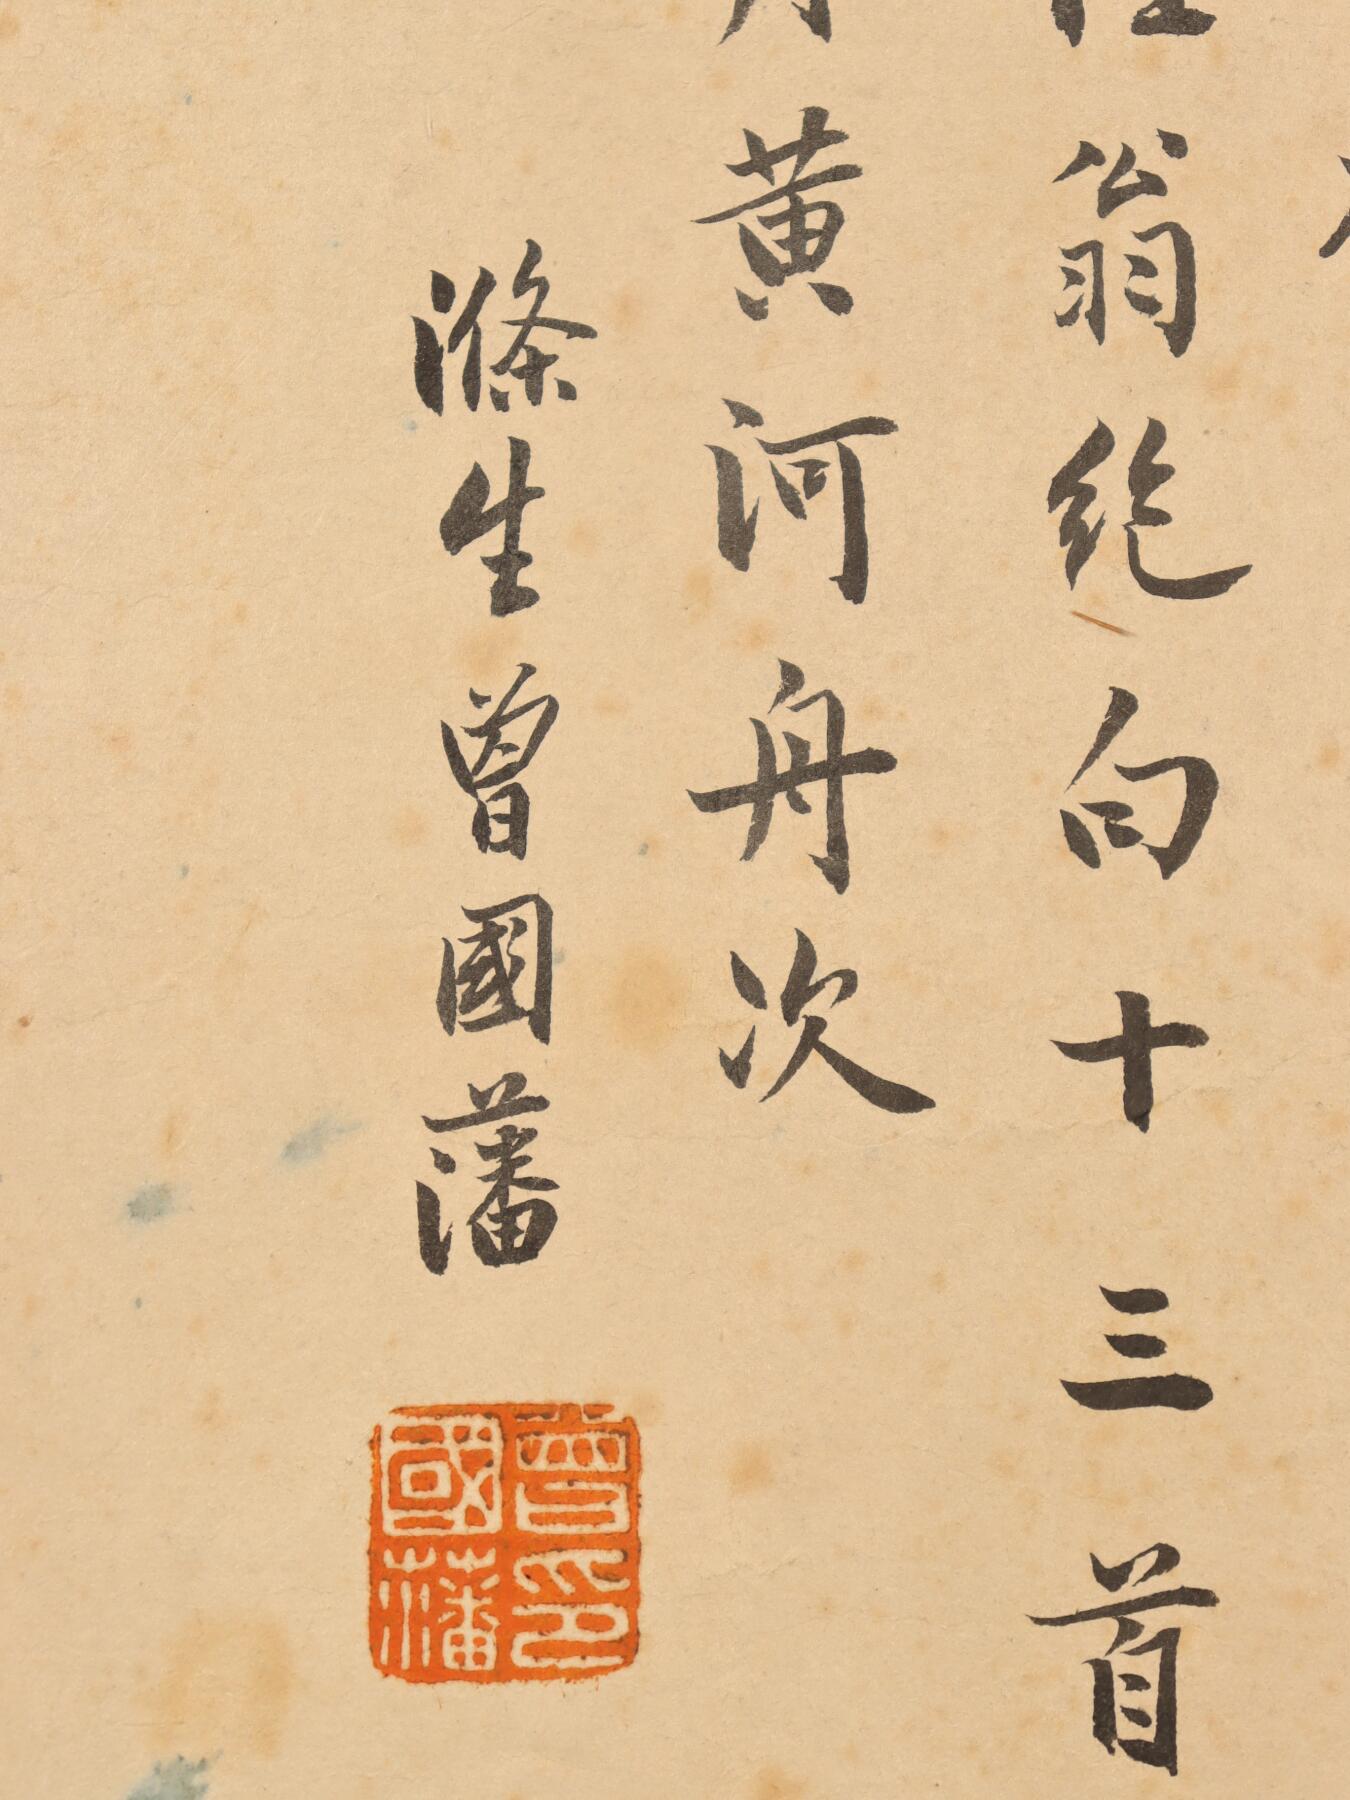 翁絶句十三首
月黄河舟次
滌生曾國藩
曾國藩印